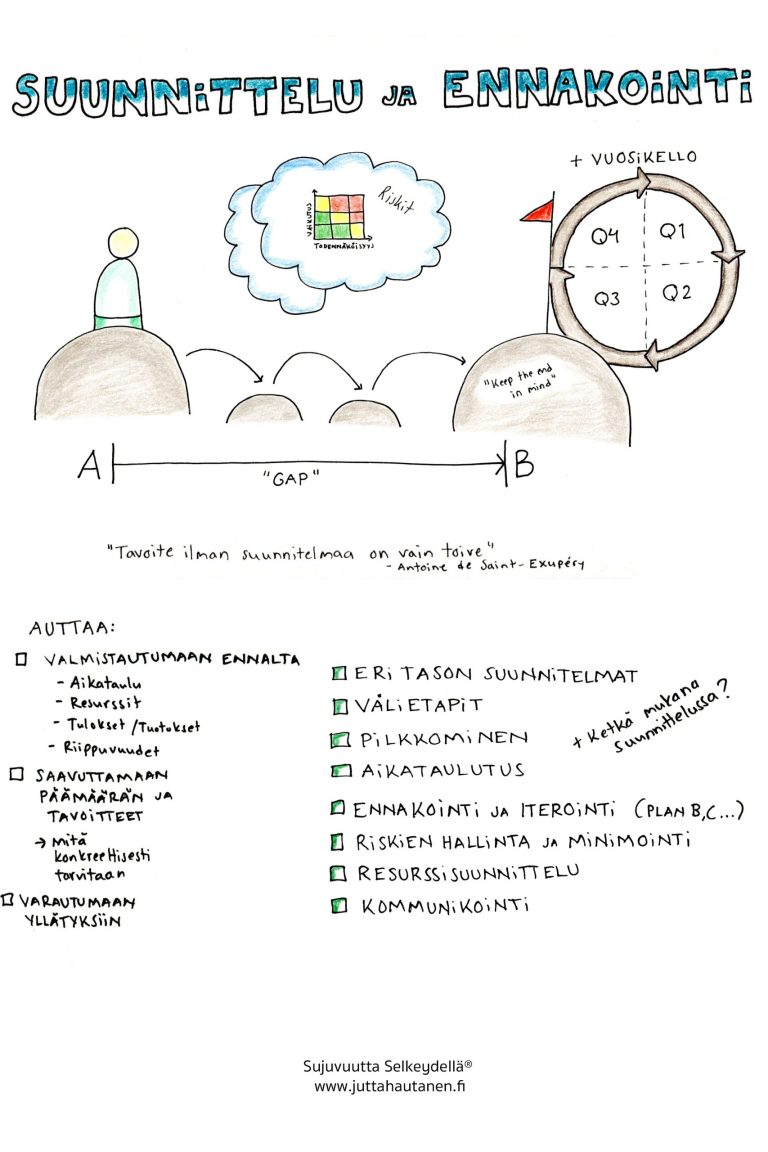 SUUNNITTELU JA ENNAKOINTI
+ VUOSIKELLO
Riskit
VAIKUTUS
TODENNÄKÖISYYS
Q4
Q1
Q3
Q2
"Keep the end
in mind"
A
B
"GAP"
"Tavoite ilman suunnitelmaa on vain toive"
- Antoine de Saint-Exupéry
AUTTAA:
VALMISTAUTUMAAN ENNALTA
- Aikataulu
- Resurssit
- Tulokset / Tuotokset
- Riippuvuudet
SAAVUTTAMAAN
PÄÄMÄÄRÄN JA
TAVOITTEET
→ mitä
konkreettisesti
tarvitaan
VARAUTUMAAN
YLLÄTYKSIIN
ERI TASON SUUNNITELMAT
VÄLIETAPIT
PILKKOMINEN
AIKATAULUTUS
ENNAKOINTI JA ITEROINTI (PLAN B,C...)
RISKIEN HALLINTA JA MINIMOINTI
RESURSSISUUNNITTELU
KOMMUNIKOINTI
+ Ketkä mukana
suunnittelussa?
Sujuvuutta Selkeydellä®
www.juttahautanen.fi